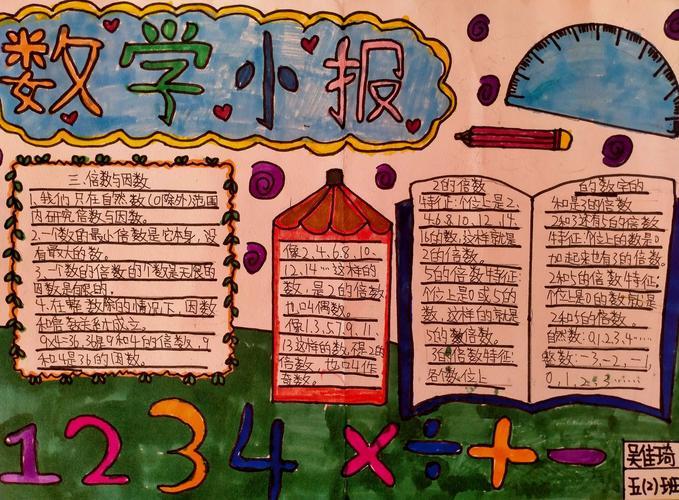 数学小报
三.倍数与因数
1.我们只在自然数(0除外)范围
内研究倍数与因数。
2.一个数的最小倍数是它本身,没
有最大的数。
3.一个数的倍数的个数是无限的
因数是有限的。
4.在整数除的情况下,因数
和倍数
9×4=36,36是9和4的倍数,9
和4是36的因数。
像2.4.6.8.10.
12.14…这样的
数,是2的倍数
也叫偶数。
像1.3.5.7.9.11.
13这样的数,不是2的
倍数,也叫作
奇数。
2的倍数
特征:个位上是2.
4.6.8.10.12.14.
16的数,这样就是
2的倍数。
5的倍数特征:
个位上是0或5的
数,这样的就是
5的数倍数。
3的倍数特征:
各个数位上
的数字的
和是3的倍数
2和3还有5的倍数
特征:个位上的数是0
加起来也有3的倍数。
2和5的倍数特征:
个位是0的数就是
2和5的倍数。
自然数:0,1,2,3,4……
整数:-3,-2,-1,
0,1,2,3……
1234×÷+-
吴佳琦
五(2)班